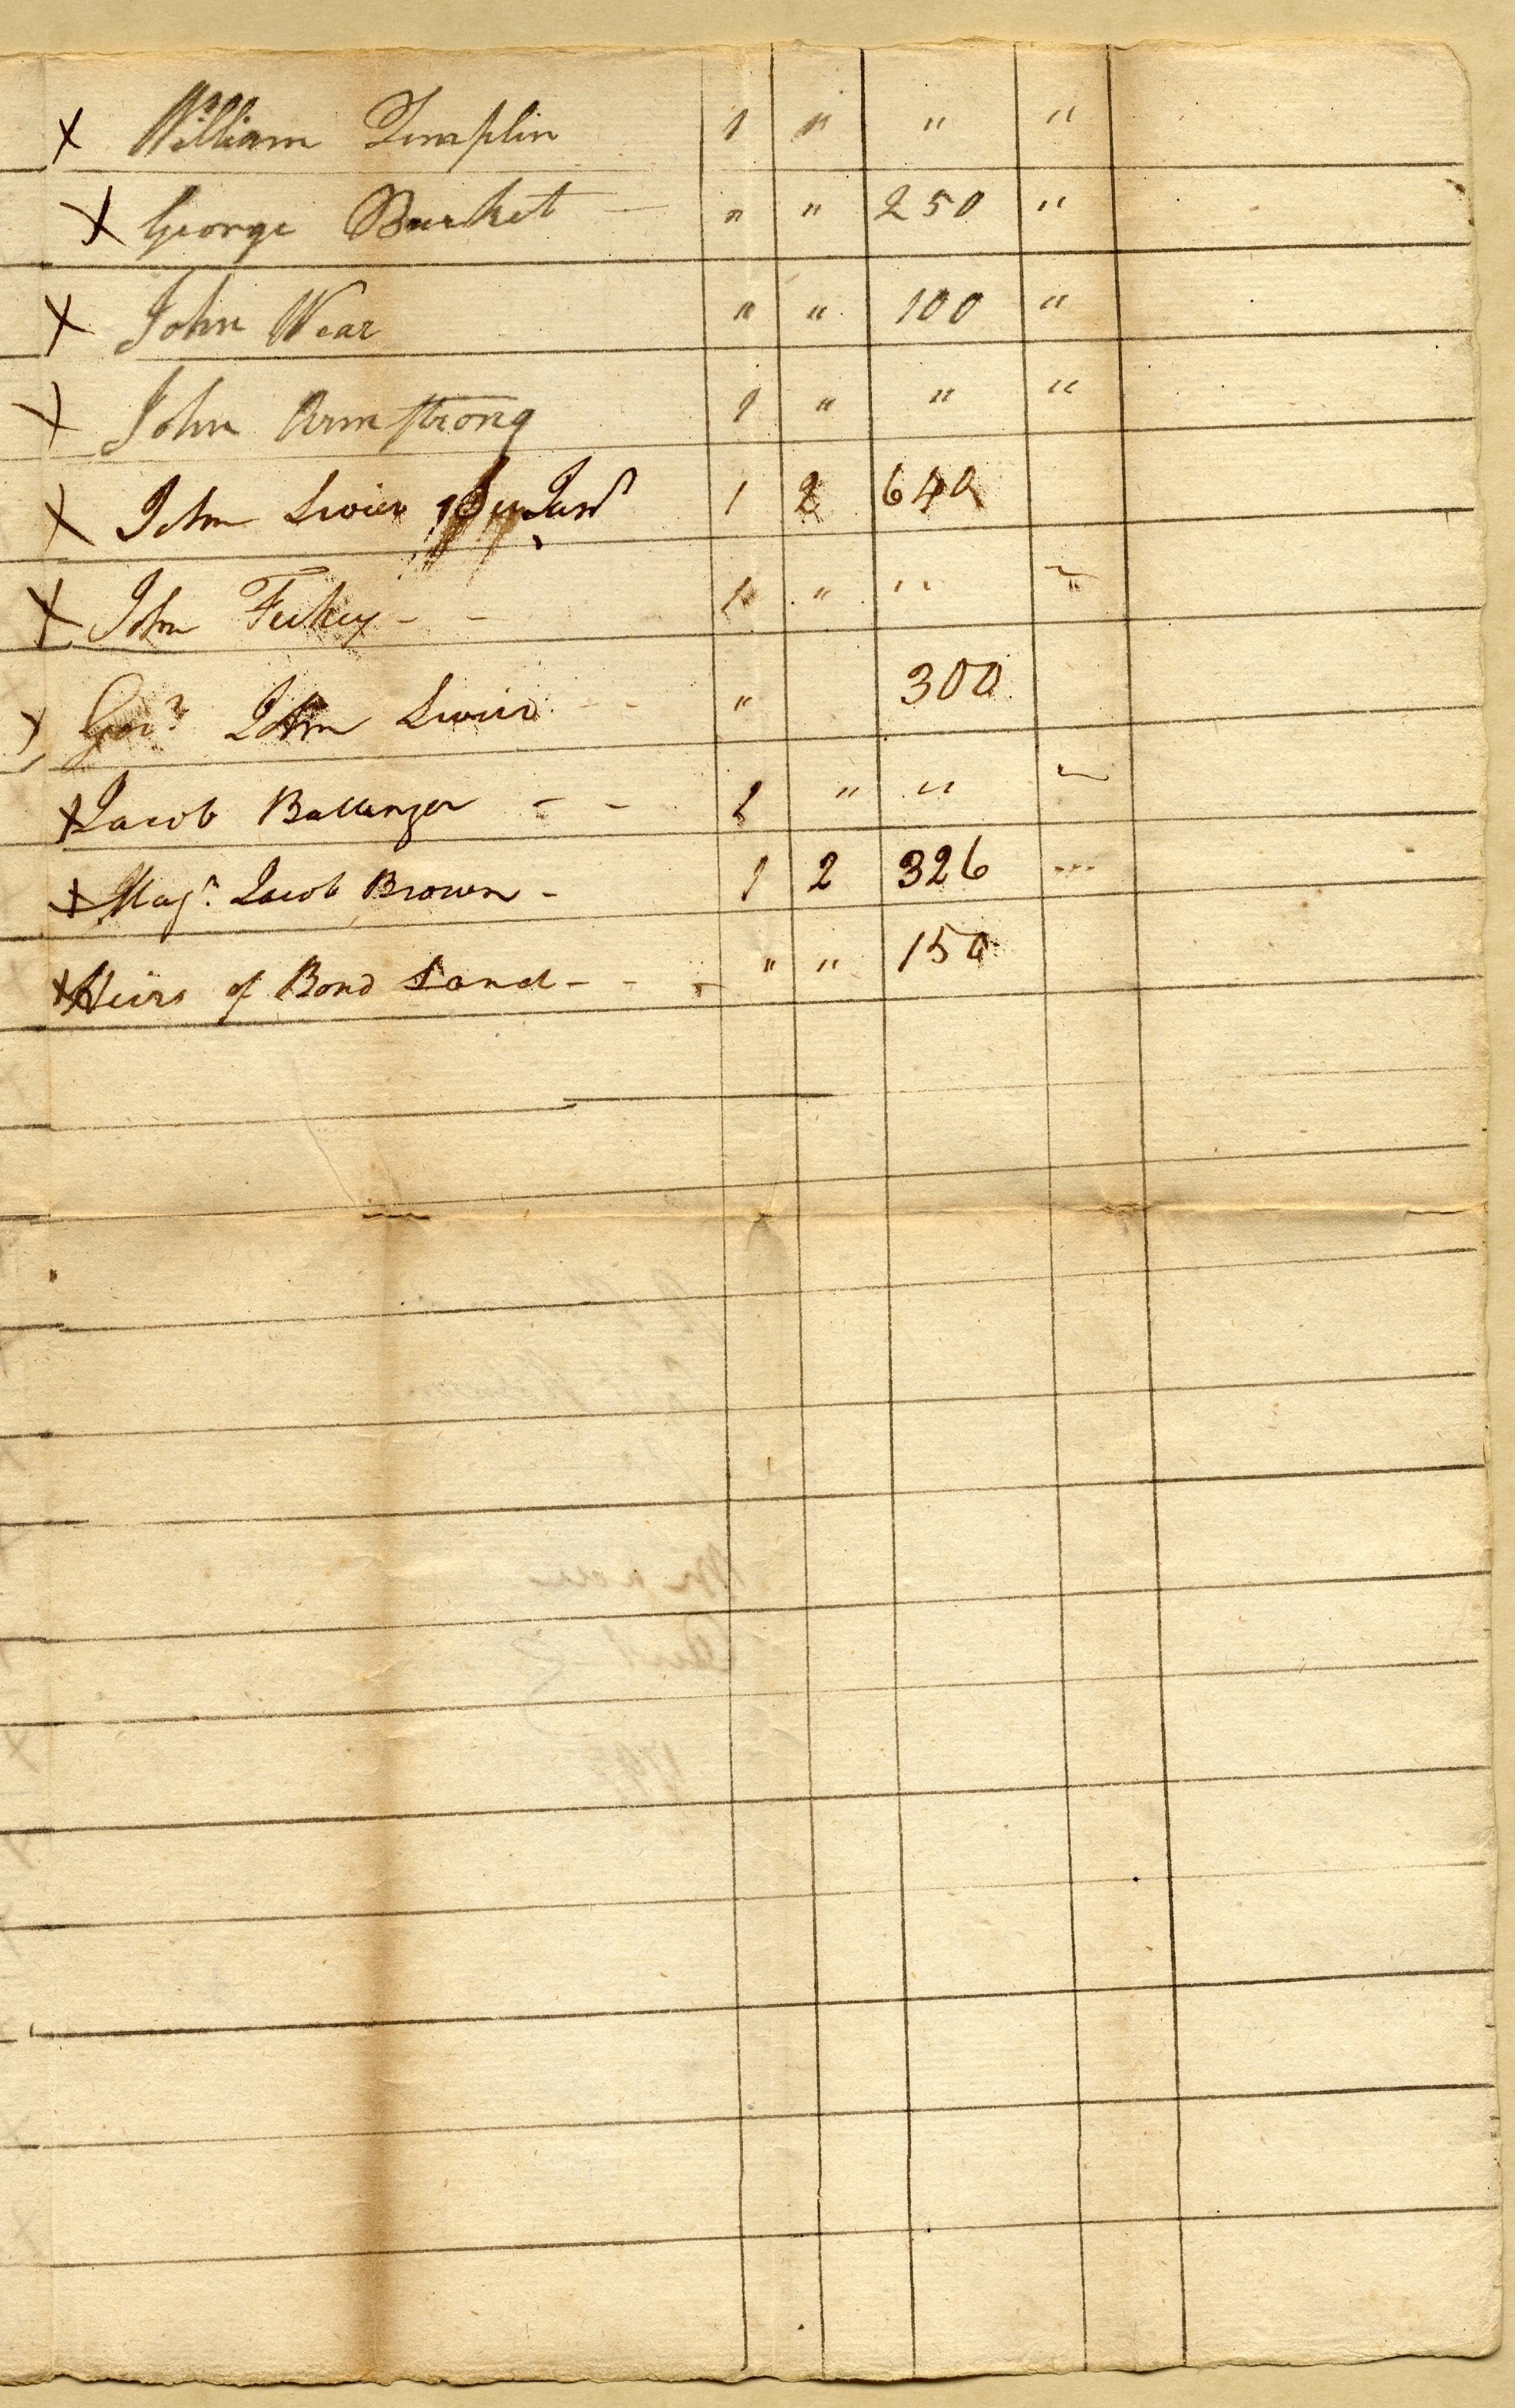 X William Templin 1 " " "
X George Burket — " " 250 "
X John Wear " " 100 "
X John Armstrong 1 " " "
X John Sevier Junr 1 2 640
X John Fickey - - 1 " " "
X Govr John Sevier - - " 300
X Jacob Ballenger - - 1 " "
X Majr. Jacob Brown - 1 2 326
X Heirs of Bond Land - - - " " 150